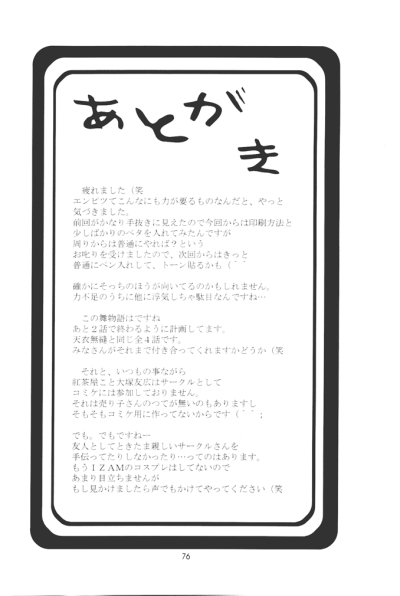 あとがき
疲れました（笑
エンピツでこんなにも力が要るものなんだと、やっと
気づきました。
前回がかなり手抜きに見えたので今回からは印刷方法と
少しばかりのベタを入れてみたんですが
周りからは普通にやれば？という
お叱りを受けましたので、次回からはきっと
普通にペン入れして、トーン貼るかも（＾＾
確かにそっちのほうが向いてるのかもしれません。
力不足のうちに他に浮気しちゃ駄目なんですね…
この舞物語はですね
あと２話で終わるように計画してます。
天衣無縫と同じ全４話です。
みなさんがそれまで付き合ってくれますかどうか（笑
それと、いつもの事ながら
紅茶屋こと大塚友広はサークルとして
コミケには参加しておりません。
それは売り子さんのつてが無いのもありますし
そもそもコミケ用に作ってないからです（＾＾；
でも。でもですねー
友人としてときたま親しいサークルさんを
手伝ってたりしなかったり…ってのはあります。
もうＩＺＡＭのコスプレはしてないので
あまり目立ちませんが
もし見かけましたら声でもかけてやってください（笑
76